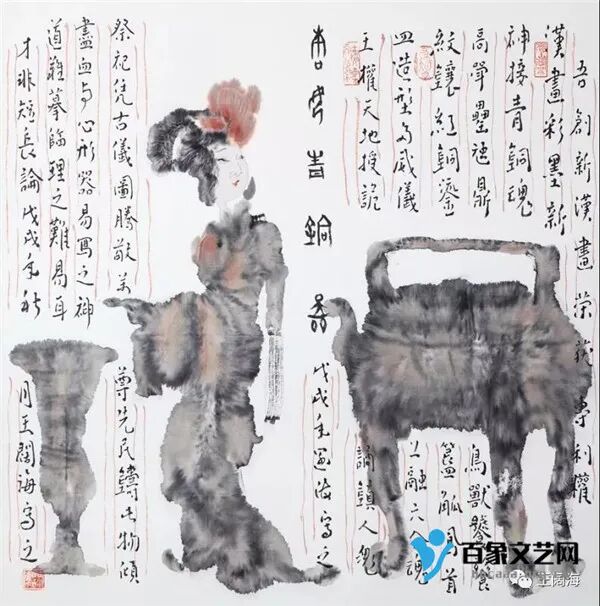 吾創新漢畫榮获專利權
漢畫彩墨新
神接青銅魂
高斝罍 鼎
鳥獸饕餮
紋鑲紅銅鎏
簋觚鳳首
皿造型多威儀
上融六合魂
王權天地授詭
譎鎮人鬼
青銅器
戊戌年闊海寫之
祭祀凭古儀圖騰敬
尊先民鑄出物傾
盡血与心形器易寫之神
道難摹臨理之難易耳
才非短長論戊戌年秋
月王闊海寫之
百象文艺网
王阔海